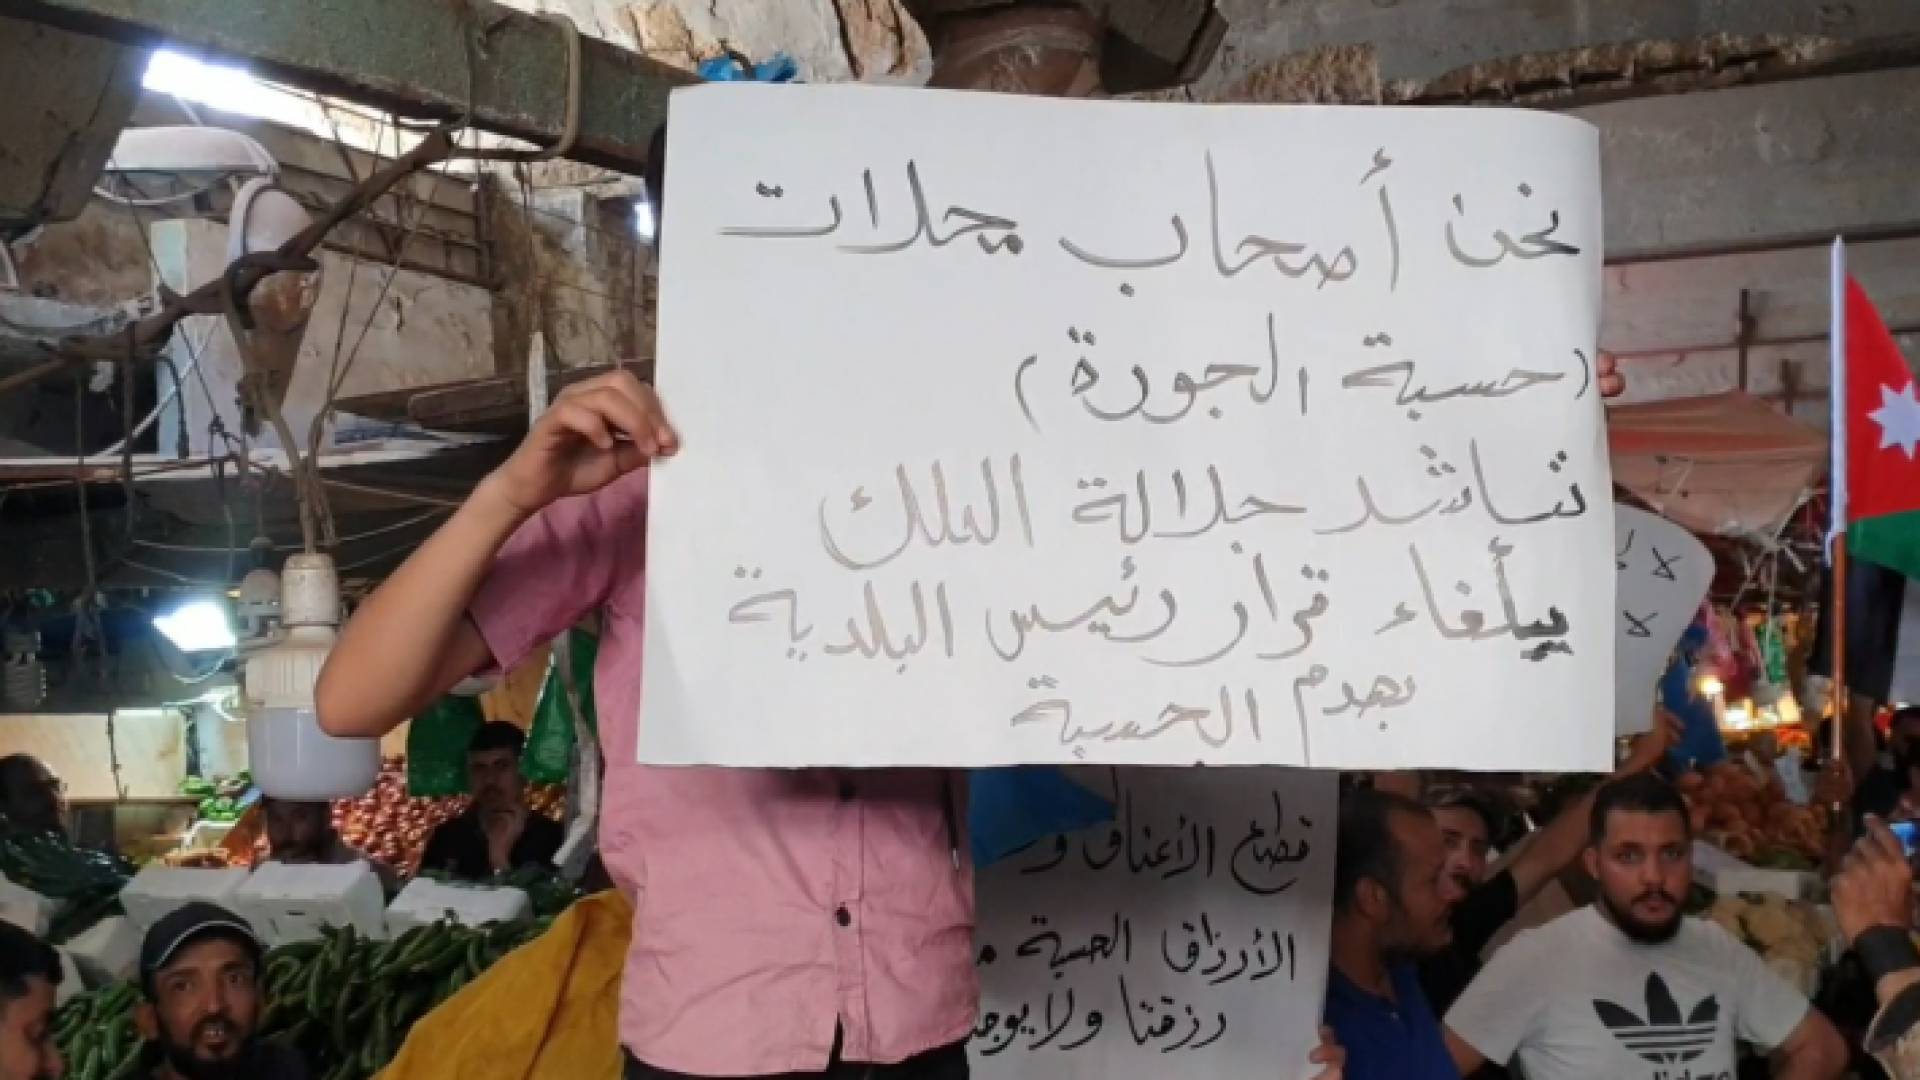 نحن أصحاب محلات
(حسبة الجورة)
نناشد جلالة الملك
بإلغاء قرار رئيس البلدية
بهدم الحسبة
قطاع الأعناق و
الأرزاق الحسبة
رزقنا ولا يوجد
لا
لا